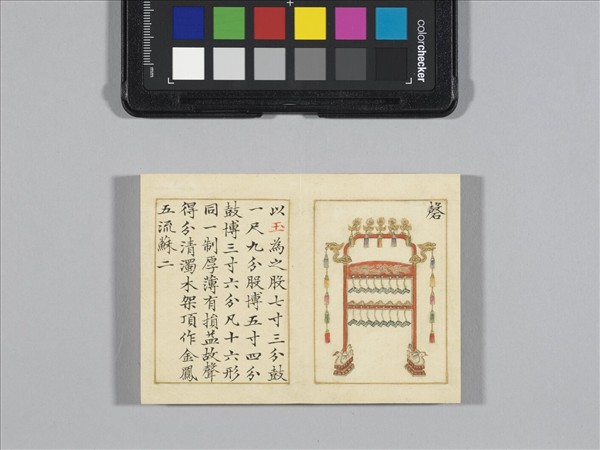 磬
以玉為之股七寸三分鼓
一尺九分股博五寸四分
鼓博三寸六分凡十六形
同一制厚薄有損益故聲
得分清濁木架頂作金鳳
五流蘇二
colorchecker
mm